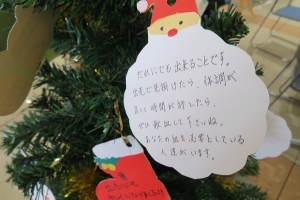 だれにでも出来ることです。
出先で見掛けたら、体調が
良くて時間が許したら、
ぜひ献血して下さいね。
あなたの血を必要としている
人達がいます。